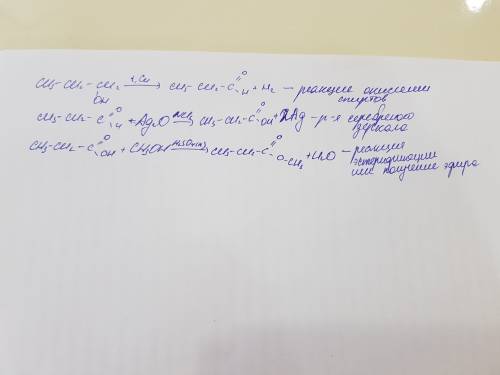 CH3-CH2-CH2 –t, Cu→ CH3-CH2-C =O -H + H2 – реакция окисления спиртов
OH
CH3-CH2-C =O -H + Ag2O –NH3→ CH3-CH2-C =O -OH + 2Ag – р-я серебряного зеркала
CH3-CH2-C =O -OH + CH3OH –H2SO4(к)→ CH3-CH2-C =O -O-CH3 + H2O – реакция этерификации или получение эфира